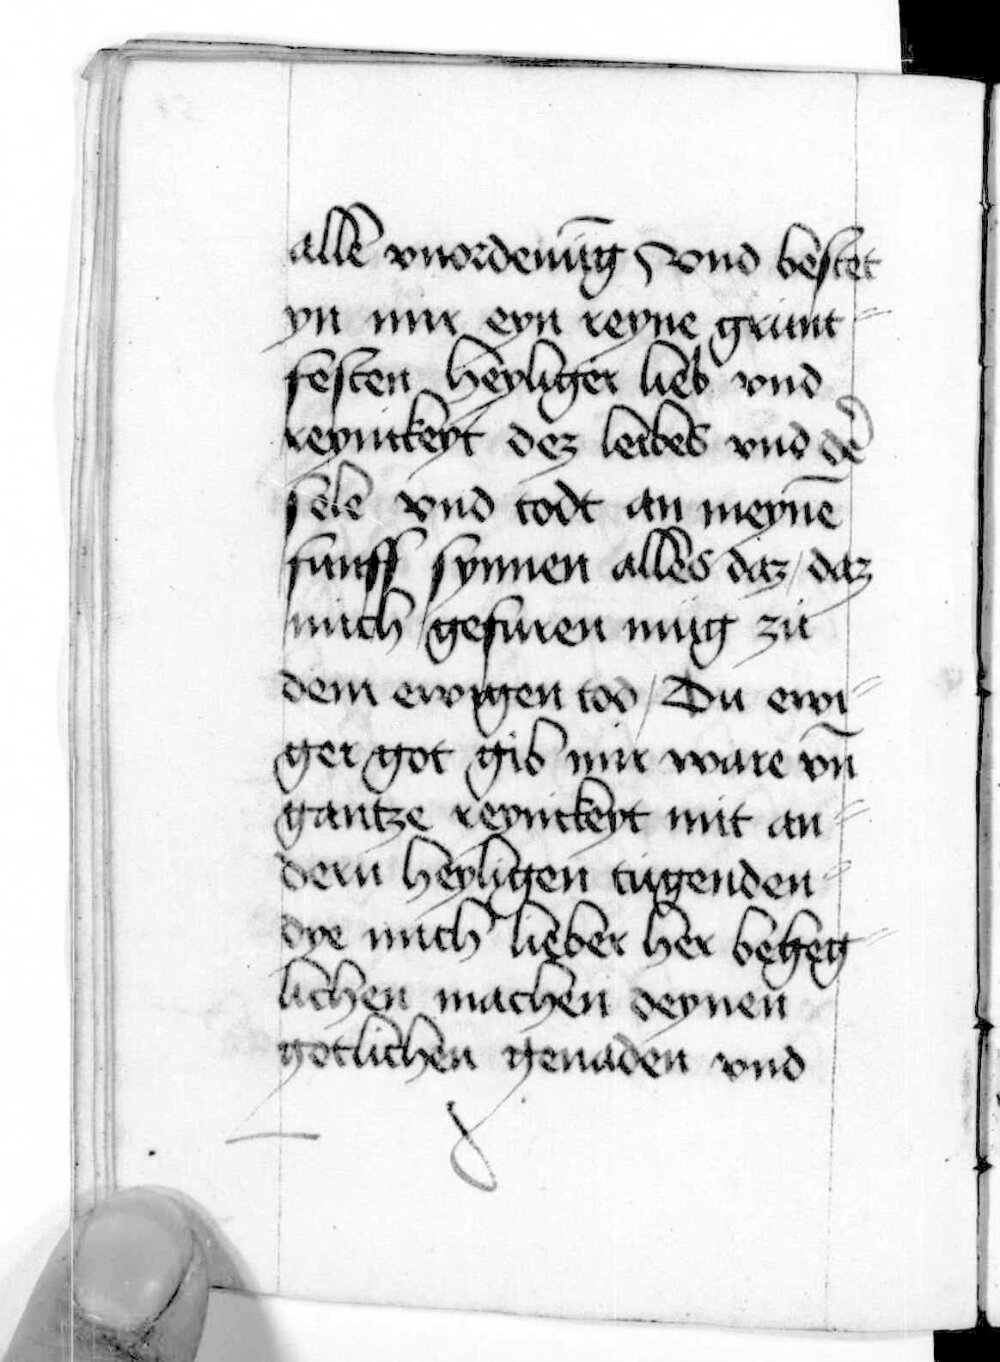 alle vnordenūg / vnd bestet
yn mir eyn reyne grunt=
festen heyliger lieb vnd
reynickeyt dez leibes vnd der
sele vnd todt an meynē
funff synnen alles daz / daz
mich gefuren müg zu
dem ewigen tod / Du ewi=
ger got gib mir ware vn̄
gantze reynickeyt mit an=
dern heyligen tugenden=
dye mich lieber her beheg=
lichen machen deynen
gotlichen genaden vnd